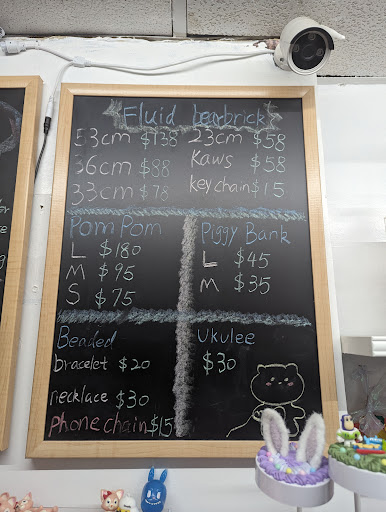 Fluid bearbrick
53cm $138 23cm $58
36cm $88 Kaws $58
33cm $78 key chain $15
Pom Pom
L $180
M $95
S $75
Piggy Bank
L $45
M $35
Beaded
bracelet $20
necklace $30
phone chain $15
Ukulee
$30